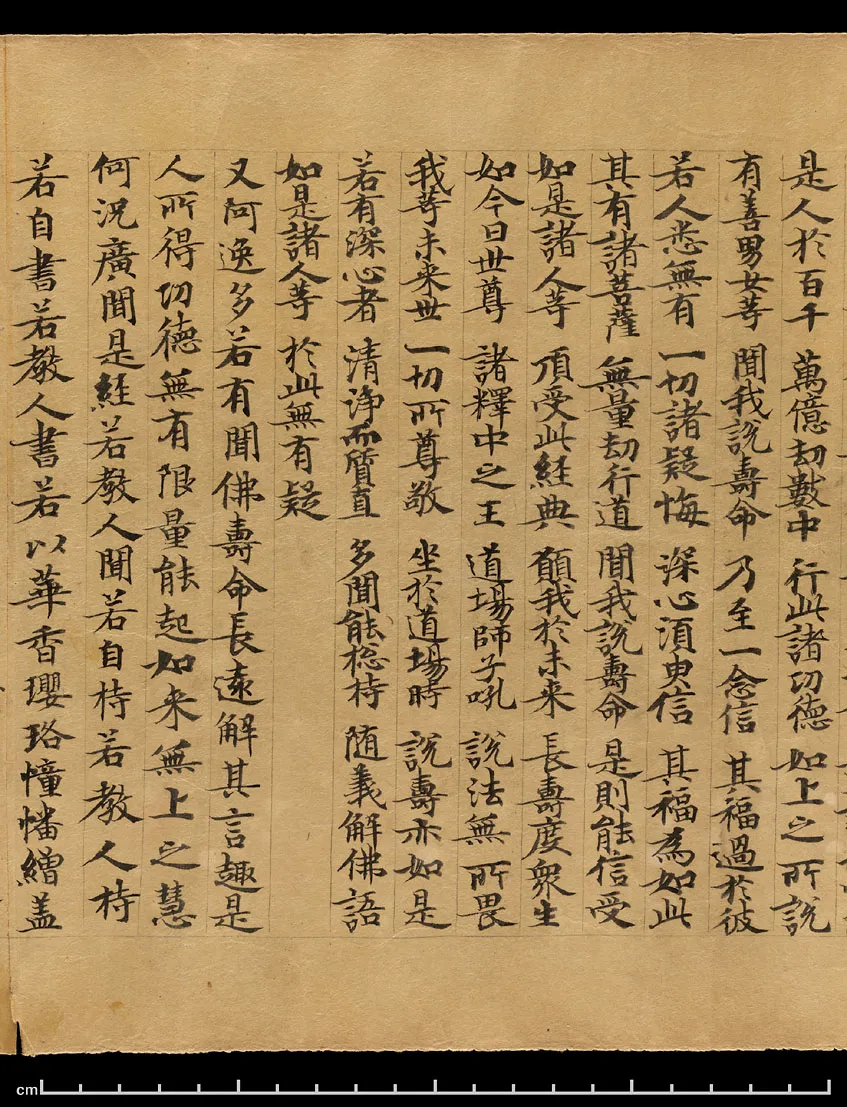 是人於百千 萬億劫數中 行此諸功德 如上之所說
有善男女等 聞我說壽命 乃至一念信 其福過於彼
若人悉無有 一切諸疑悔 深心須臾信 其福為如此
其有諸菩薩 無量劫行道 聞我說壽命 是則能信受
如是諸人等 頂受此經典 願我於未來 長壽度衆生
如今日世尊 諸釋中之王 道場師子吼 說法無所畏
我等未来世 一切所尊敬 坐於道場時 說壽亦如是
若有深心者 清淨而質直 多聞能揔持 随義解佛語
如是諸人等 於此無有疑
又阿逸多若有聞佛壽命長遠解其言趣是
人所得功德無有限量能起如来無上之慧
何況廣聞是經若教人聞若自持若教人持
若自書若教人書若以華香瓔珞幢幡繒盖
cm